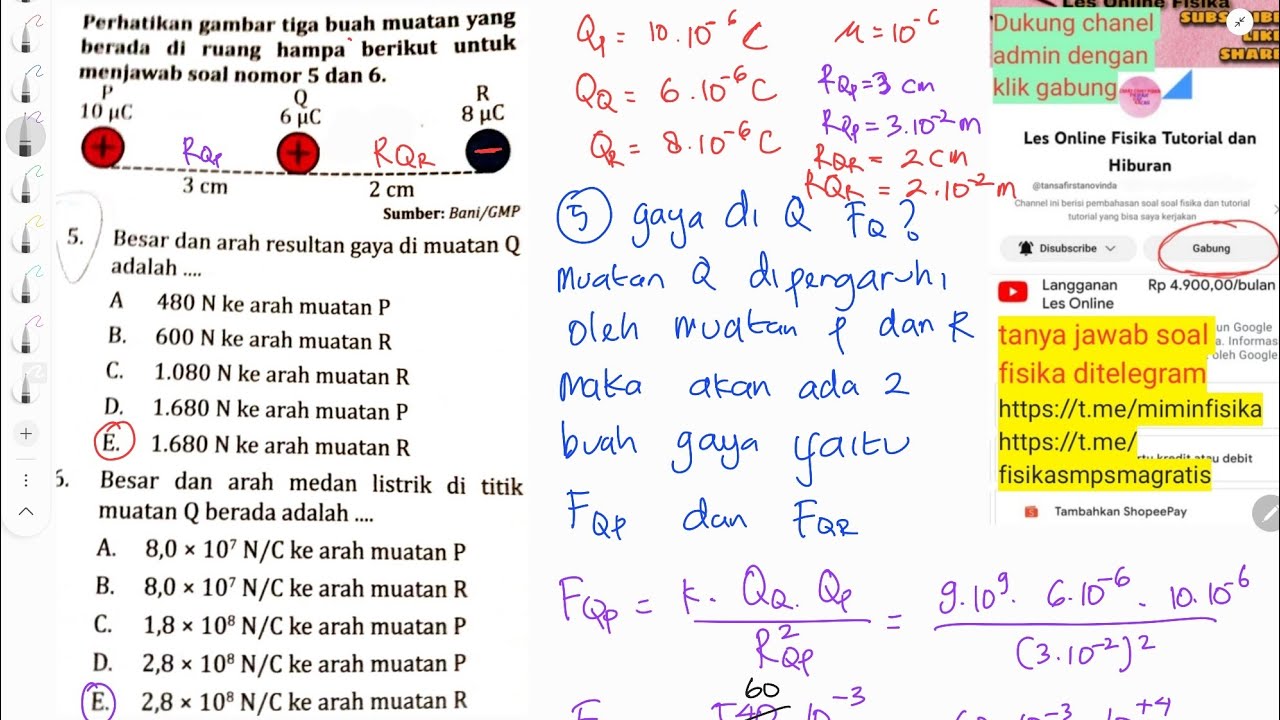 Perhatikan gambar tiga buah muatan yang
berada di ruang hampa berikut untuk
menjawab soal nomor 5 dan 6.
P
10 μC
Q
6 μC
R
8 μC
+
+
−
RQP
RQR
3 cm
2 cm
Sumber: Bani/GMP
5. Besar dan arah resultan gaya di muatan Q
adalah ....
A 480 N ke arah muatan P
B. 600 N ke arah muatan R
C. 1.080 N ke arah muatan R
D. 1.680 N ke arah muatan P
E. 1.680 N ke arah muatan R
6. Besar dan arah medan listrik di titik
muatan Q berada adalah ....
A. 8,0 × 10⁷ N/C ke arah muatan P
B. 8,0 × 10⁷ N/C ke arah muatan R
C. 1,8 × 10⁸ N/C ke arah muatan P
D. 2,8 × 10⁸ N/C ke arah muatan P
E. 2,8 × 10⁸ N/C ke arah muatan R
QP = 10.10⁻⁶ C
QQ = 6.10⁻⁶ C
QR = 8.10⁻⁶ C
μ = 10⁻⁶
RQP = 3 cm
RQP = 3.10⁻² m
RQR = 2 cm
RQR = 2.10⁻² m
5 gaya di Q FQ?
muatan Q dipengaruhi
oleh muatan P dan R
maka akan ada 2
buah gaya yaitu
FQP dan FQR
FQP = k. QQ. QP / R²QP = 9.10⁹. 6.10⁻⁶. 10.10⁻⁶ / (3.10⁻²)²
60
540 10⁻³
10⁻³ 10⁺⁴
Les Online Fisika
SUBS IBE
LIKE
SHARE
Dukung chanel
admin dengan
klik gabung
Les Online Fisika Tutorial dan
Hiburan
@tansafirstanovinda
Channel ini berisi pembahasan soal soal fisika dan tutorial
tutorial yang bisa saya kerjakan
Disubscribe
Gabung
Langganan
Les Online
Rp 4.900,00/bulan
tanya jawab soal
fisika ditelegram
https://t.me/miminfisika
https://t.me/
fisikasmpsmagratis
un Google
a. Informas
oleh Google
rtu kredit atau debit
Tambahkan ShopeePay